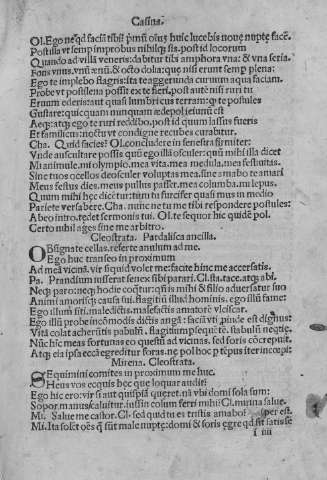 Casina.
Ol. Ego neq̃d faciā tibi in p̃mũ oĩuʒ huic lucebis noue nupte facē.
Postilla vt semp improbus nihilq; sia. post id locorum
Quando ad villā veneris: dabitur tibi amphora vna: & vna seria.
Fons vnus. vnũ aenũ. & octo dolia: que nisi erunt semp plena:
Ego te implebo flagris: ita te aggerunda curuum aqua faciam.
Probe vt postilena possit ex te fieri. post aute nisi ruri tu
Eruum ederis: aut quasi lumbricus terram: q te postules
Gustare: quicquam nunquam aedepol ieiunũ est
Aeq; atq; ego te ruri reddibo. post id quum lassus fueris
Et famelicus: noctu vt condigne te cubes curabitur.
Cha. Quid facies? Ol. concludere in fenestra firmiter:
Vnde auscultare possis quũ ego illā osculer: quũ mihi illa dicet
Mi animule. mi olympio. mea vita. mea medula. mea festiuitas.
Sine tuos ocellos deosculer voluptas mea. sine amabo te amari
Meus festus dies. meus pullus passer. mea columba. mi lepus.
Quum mihi hec dicētur: tum tu furcifer quasi mus in medio
Pariete versabere. Cha. nunc ne tu me tibi respondere postules:
Abeo intro. tedet sermonis tui. Ol. te sequor hic quidē pol.
Certo nihil ages sine me arbitro.
Cleostrata. Pardalisca ancilla.
OBsignate cellas. referte anulum ad me.
Ego huc transeo in proximum
Ad meā vicinā. vir si quid volet me: facite hinc me accersatis.
Pa. Prandium iusserat senex sibi parari. Cl. sta. tace. atq; abi.
Neq; paro: neq; hodie coq̃tur: qñ is mihi & filio aduersatur suo
Animi amorisq; causa sui. flagitiũ illud hominis. ego illũ fame:
Ego illum siti. maledictis. malefactis amatorē vlciscar.
Ego illũ probe incōmodis dictis angā: faciā vti pinde est dignus:
Vitā colat acherũtis pabulũ. flagitium psequētē. stabulũ neq̃tie.
Nũc hic meas fortunas eo questũ ad vicinas. sed foris cōcrepuit.
Atq; eia ipsa eccā egreditur foras. ne pol hoc p tēpus iter incoepi
Mirena. Cleostrata.
SEquimini comites in proximum me huc.
Heus vos ecquis hec que loquar audit:
Ego hic ero: vir si aut quispiā queret. nā vbi domi sola sum:
Sopor manus caluitur. iussin colum ferri mihi: Cl. mirina salue.
Mi. Salue me castor. Cl. sed quid tu es tristis amabo:
Mi. Ita solēt oēs q̃ sũt male nupte: domi & foris egre qd sit satis se
i iiii